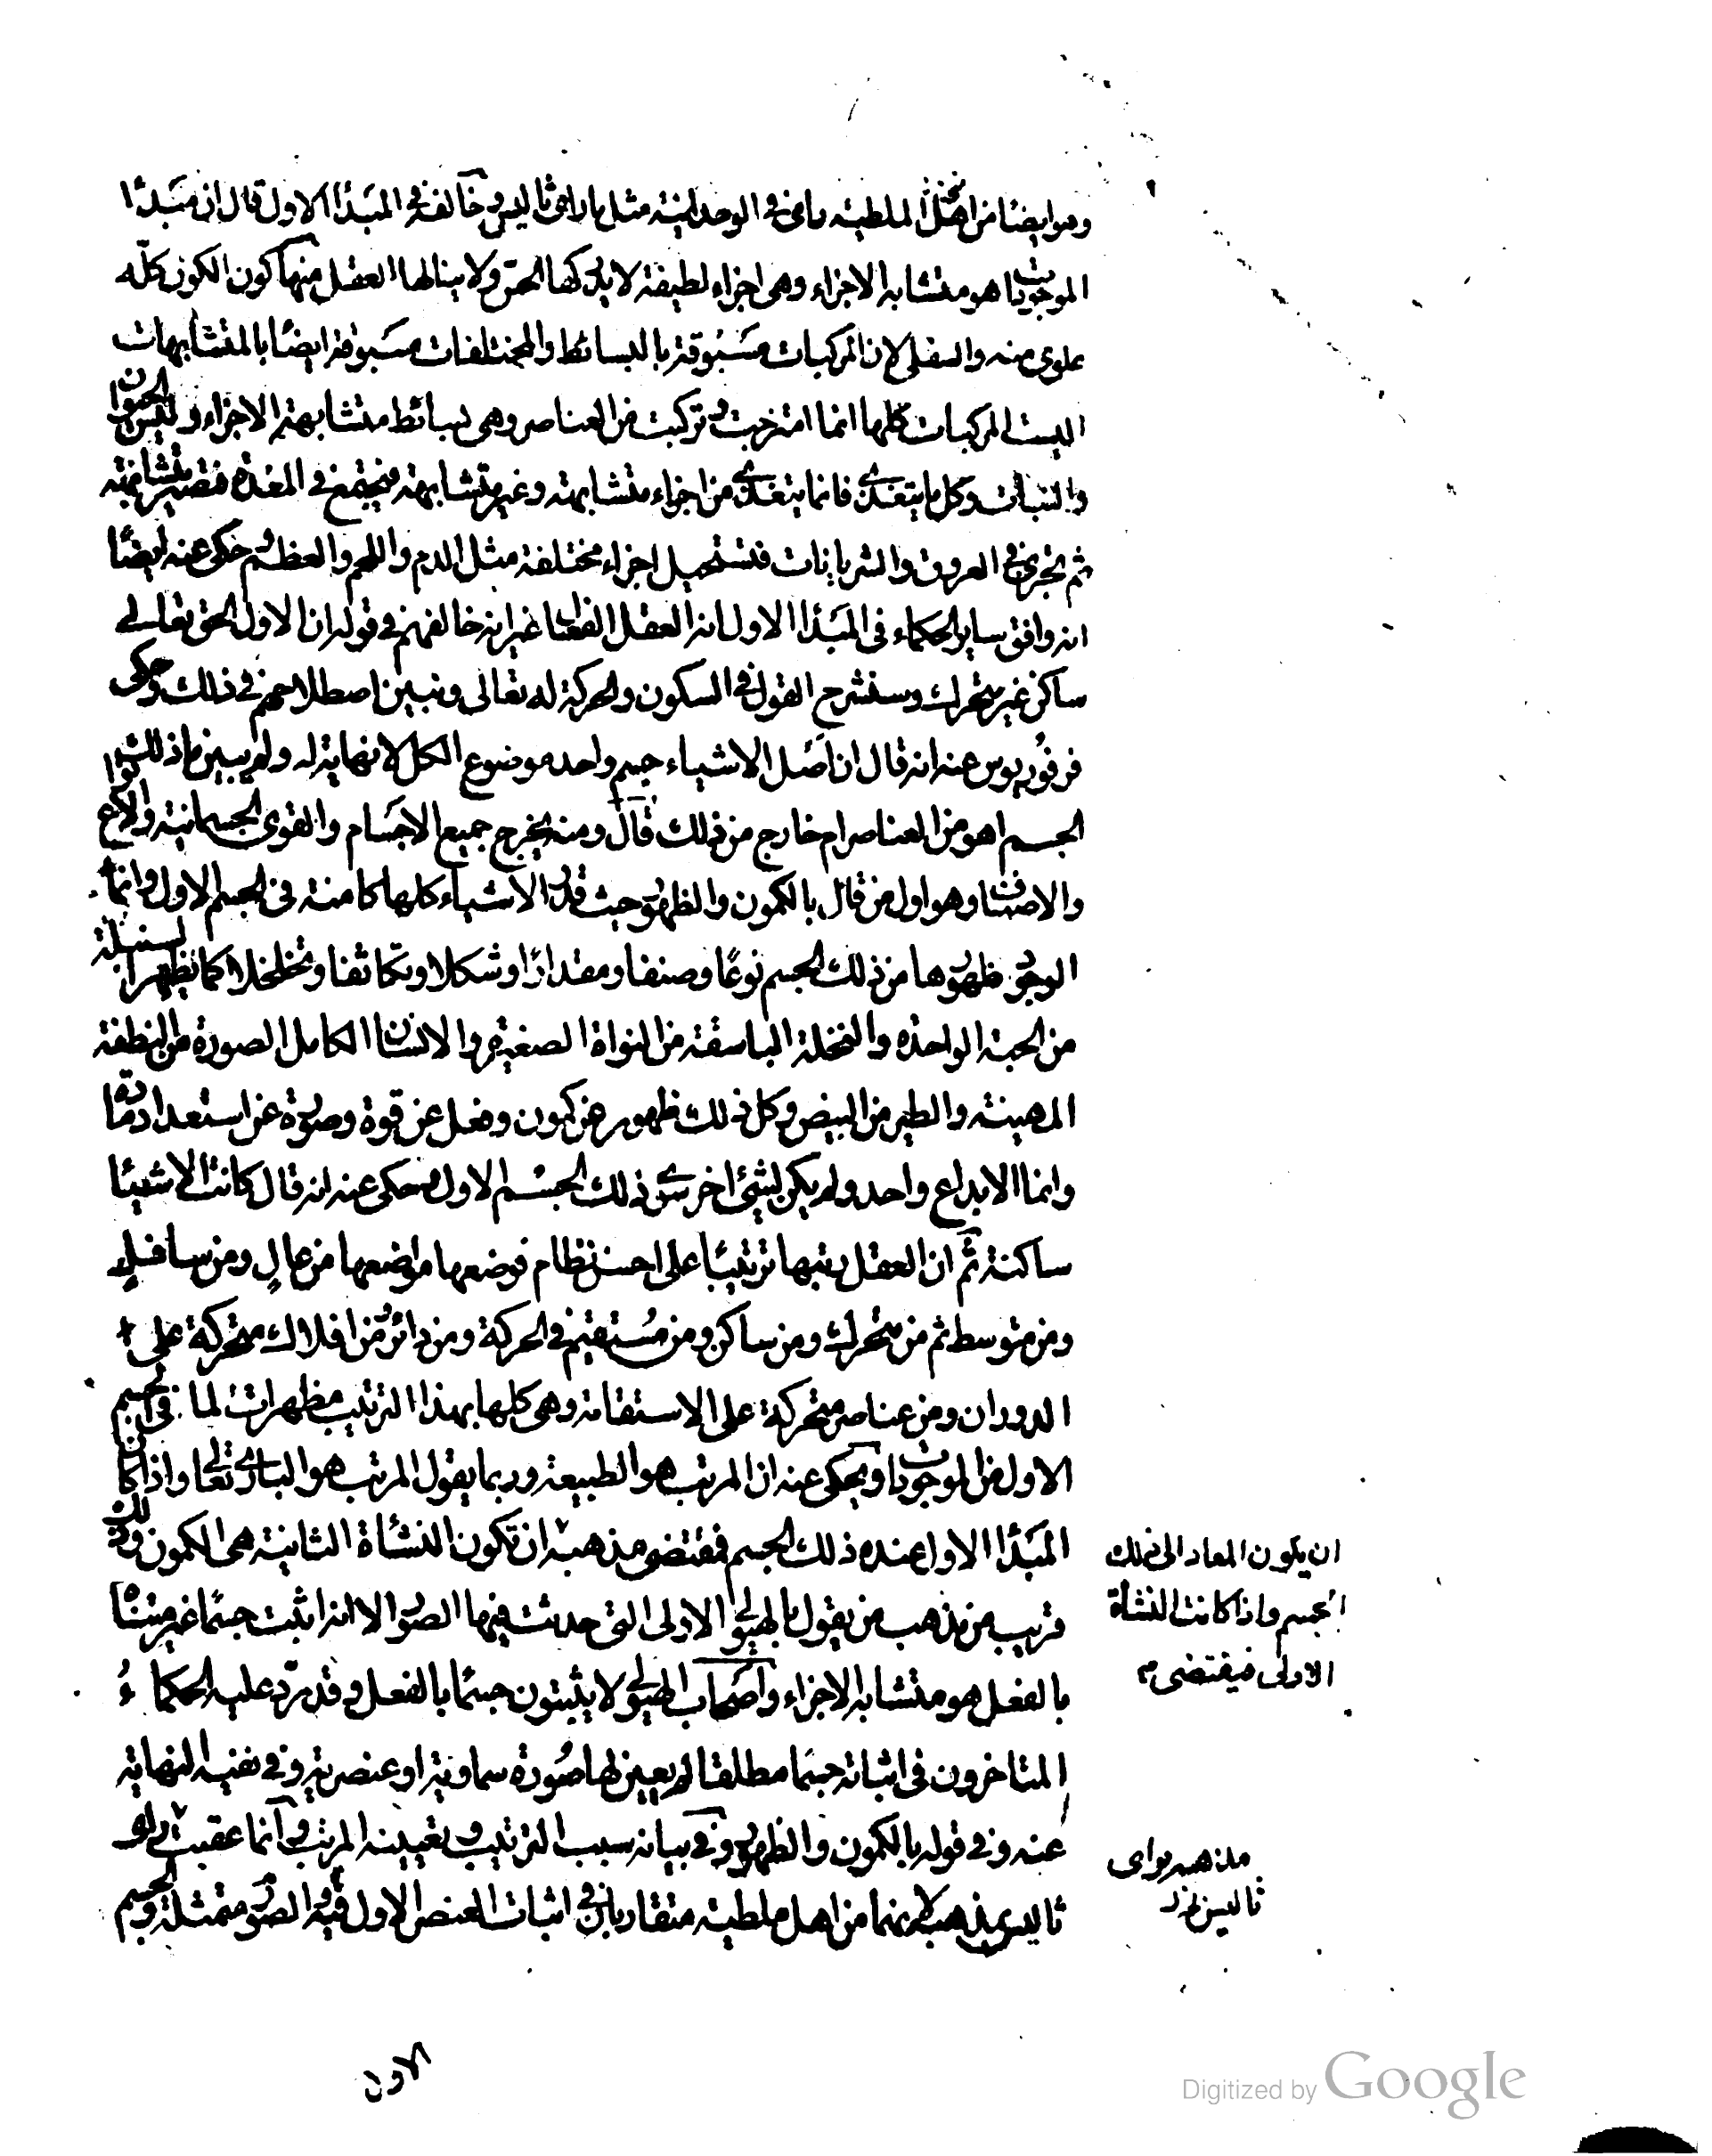 وهو ايضا من اهل الملطية راى في الوحدانية مثل ما راى ثاليس وخالفه في المبدا الاول قال ان مبدا
الموجودات هو متشابه الاجزاء وهى اجزاء لطيفة لا يدركها الحس ولا ينالها العقل منها كون الكون كله
علوى منه والسفلى لان المركبات مسبوقة بالبسائط والمختلفات مسبوقة ايضا بالمتشابهات
اليست المركبات كلها انما امتزجت وتركبت من العناصر وهى بسائط متشابهة الاجزاء وليس الحيوان
والنبات وكل ما يتغذى فانما يتغذى من اجزاء متشابهة وغير متشابهة فيجتمع في المعدة فتصير متشابهة
ثم يجرى في العروق والشريانات فتستحيل اجزاء مختلفة مثل الدم واللحم والعظم وحكى عنه ايضا
انه وافق ساير الحكماء في المبدا الاول انه العقل الفعال غير انه خالفهم في قوله ان الاول الحق تعالى
ساكن غير متحرك وسنشرح القول في السكون والحركة له تعالى ونبين اصطلاحهم في ذلك وحكى
فرفوريوس عنه انه قال ان اصل الاشياء جسم واحد موضوع الكل لا نهاية له ولم يبين ما ذلك
الجسم اهو من العناصر ام خارج من ذلك قال ومنه يخرج جميع الاجسام والقوى الجسمانية والانواع
والاصناف وهو اول من قال بالكمون والظهور حيث قدر الاشياء كلها كامنة في الجسم الاول وانما
الوجود ظهورها من ذلك الجسم نوعا وصنفا ومقدارا وشكلا وتكاثفا وتخلخلا كما يظهر السنبلة
من الحبة الواحدة والنخلة الباسقة من النواة الصغيرة والانسان الكامل الصورة من النطفة
المهينة والطير من البيض وكل ذلك ظهور عن كمون وفعل عن قوة وصورة عن استعداد مادة
وانما الابداع واحد ولم يكن لشئ اخر سوى ذلك الجسم الاول وحكى عنه انه قال كانت الاشيئا
ساكنة ثم ان العقل رتبها ترتيبا على احسن نظام فوضعها مواضعها من عال ومن سافل
ومن متوسط ثم من متحرك ومن ساكن ومن مستقيم في الحركة ومن دائر ومن افلاك متحركة على
الدوران ومن عناصر متحركة على الاستقامة وهى كلها بهذا الترتيب مظهرات لما في الجسم
الاول من الموجودات ويحكى عنه ان المرتب هو الطبيعة وربما يقول المرتب هو البارى تعالى واذا كان
المبدا الاول عنده ذلك الجسم فمقتضى مذهبه ان تكون النشأة الثانية هى الكمون وذلك
ان يكون المعاد الى ذلك
الجسم واذا كانت النشأة
الاولى فيقتضى
قريب من مذهب من يقول بالهيولى الاولى التى حدثت فيها الصور الا انه اثبت جسما غير متناه
بالفعل هو متشابه الاجزاء واصحاب الهيولى لا يثبتون جسما بالفعل وقد رد عليه الحكماء
المتاخرون في اثباته جسما مطلقا لم يعين لها صورة سماوية او عنصرية وفي نفيه النهاية
عنه وفي قوله بالكمون والظهور وفي بيانه سبب الترتيب وتعيينه المرتب وانما عقبت
مذهبه براى
ثاليس
ثاليس لانهما من اهل ملطية متقاربان في اثبات العنصر الاول والصور فيه متمثلة والجسم
الاول
Digitized by Google